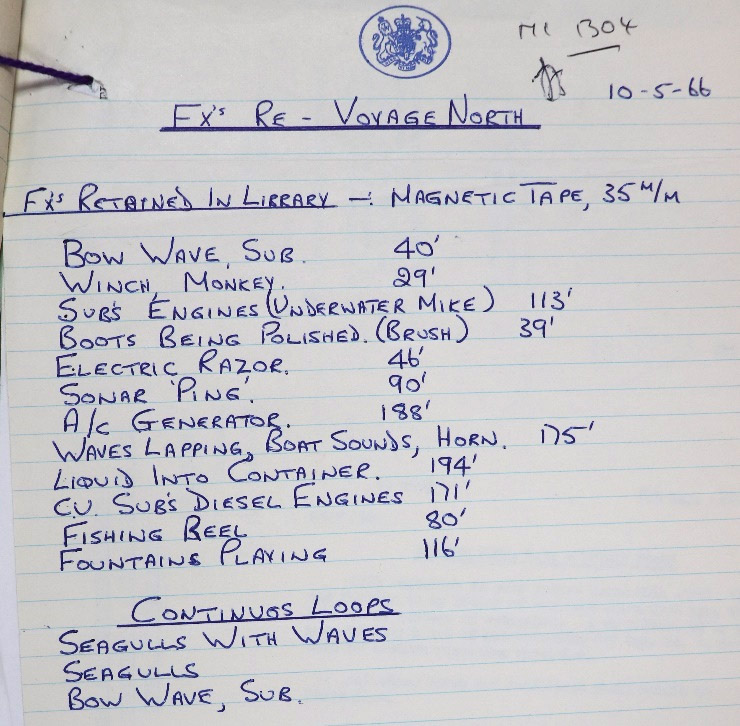 MC 1304
10-5-66
FX's RE - VOYAGE NORTH
FX's RETAINED IN LIBRARY -: MAGNETIC TAPE, 35 M/M
BOW WAVE, SUB. 40'
WINCH, MONKEY. 29'
SUB'S ENGINES (UNDERWATER MIKE) 113'
BOOTS BEING POLISHED. (BRUSH) 39'
ELECTRIC RAZOR. 46'
SONAR 'PING'. 90'
A/C GENERATOR. 188'
WAVES LAPPING, BOAT SOUNDS, HORN. 175'
LIQUID INTO CONTAINER. 194'
C.U. SUB'S DIESEL ENGINES 171'
FISHING REEL 80'
FOUNTAINS PLAYING 116'
CONTINUOS LOOPS
SEAGULLS WITH WAVES
SEAGULLS
BOW WAVE, SUB.